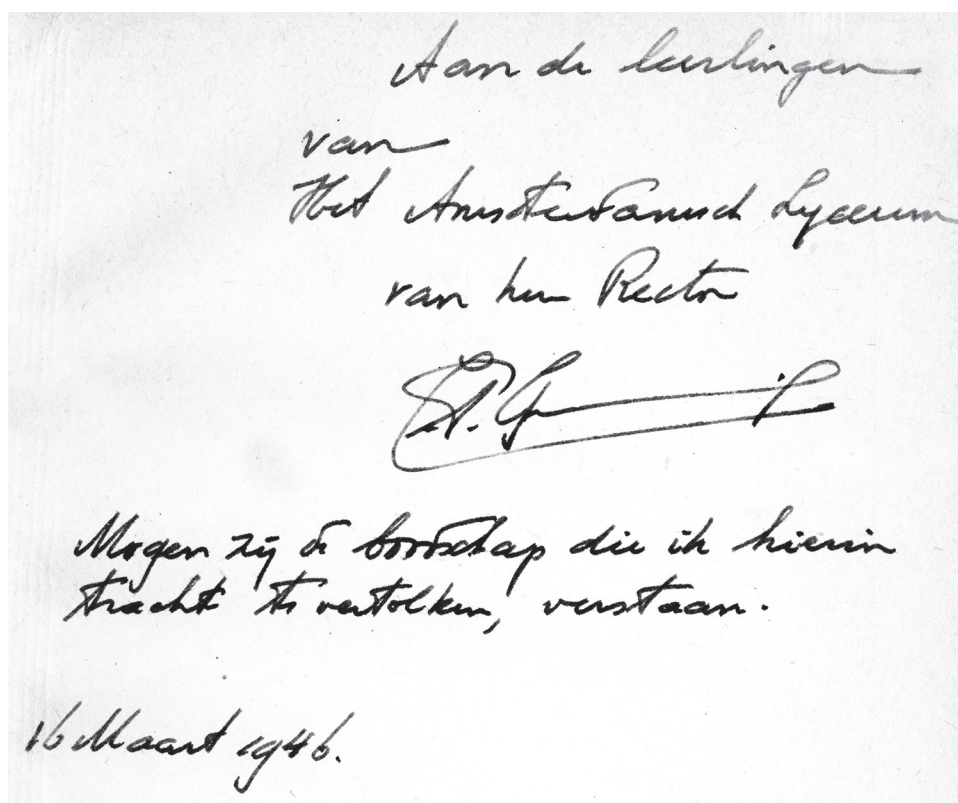 Aan de leerlingen
van
Het Amsterdamsch Lyceum
van hun Rector
Mogen zij de boodschap die ik hierin
tracht te vertolken, verstaan.
16 Maart 1946.